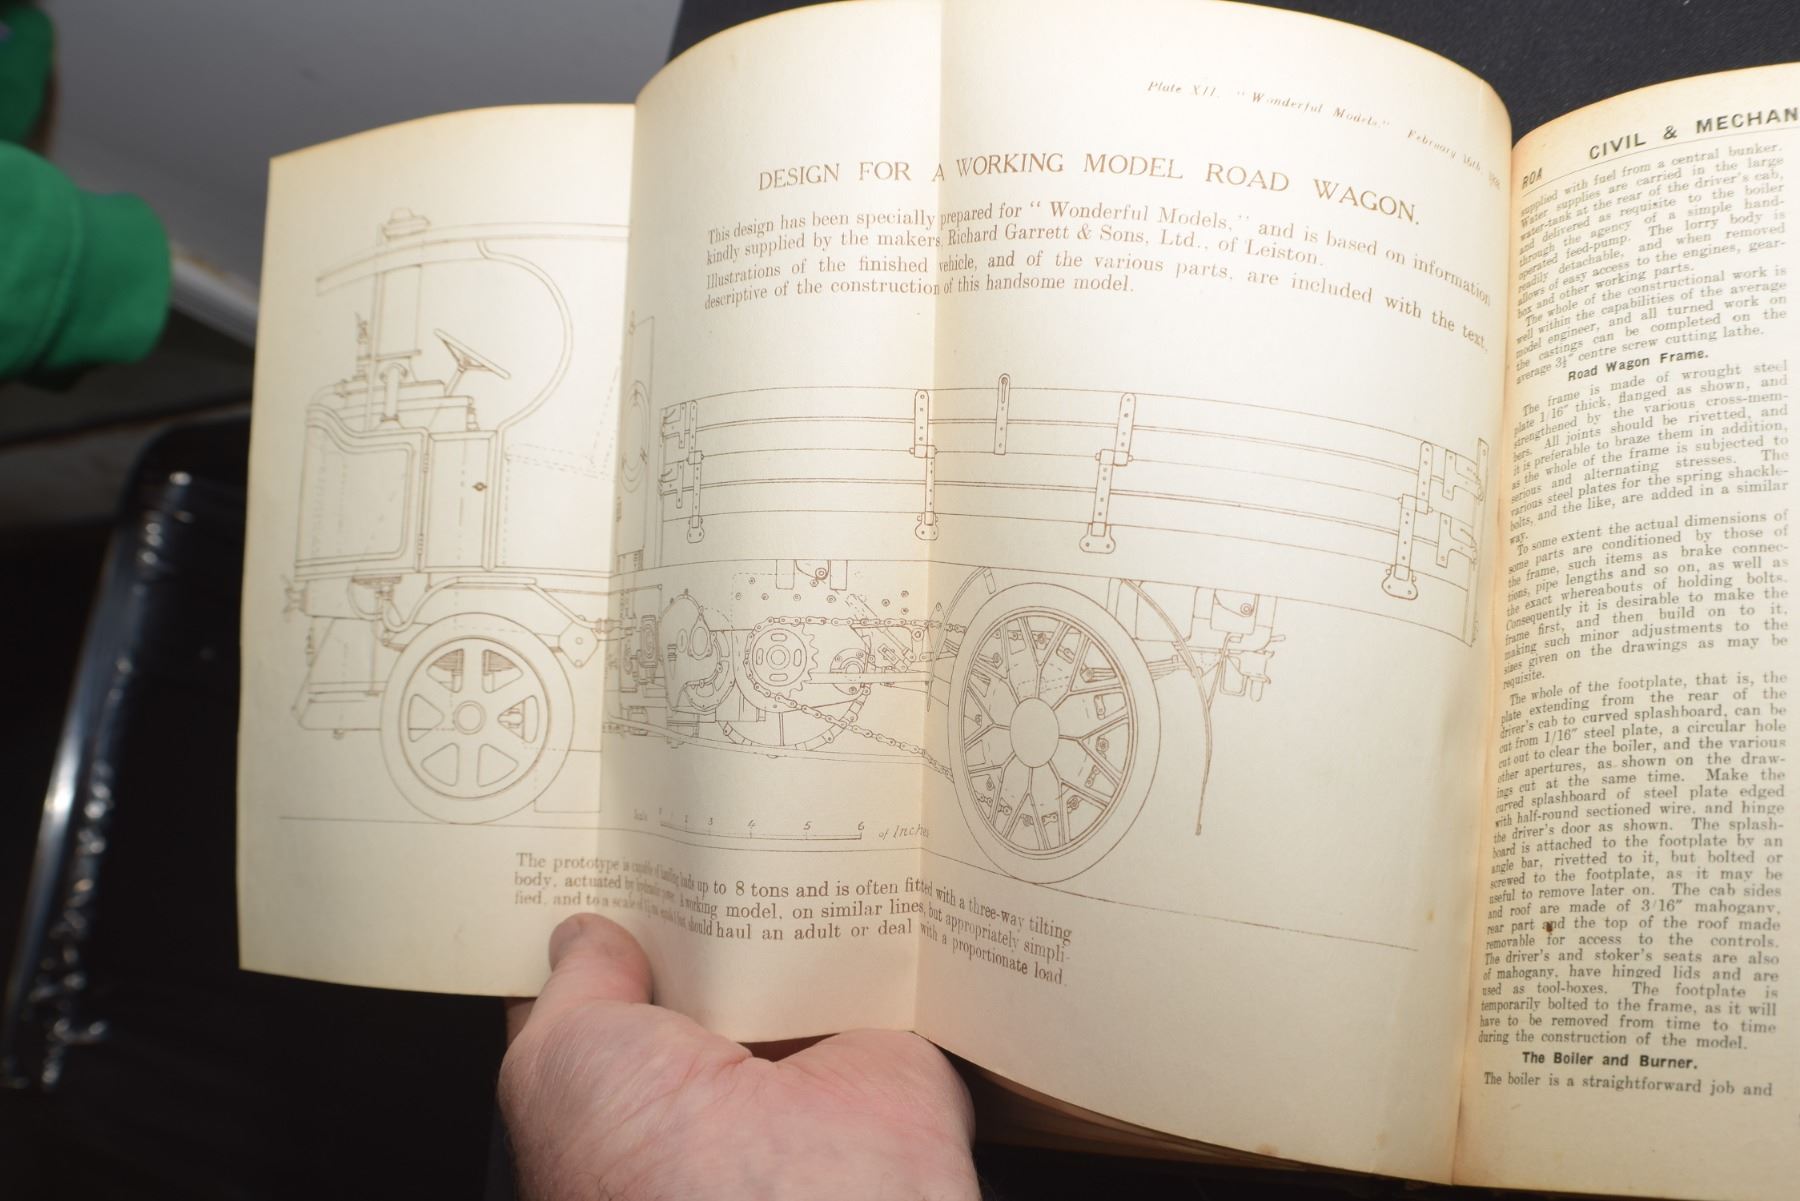 Plate XII. "Wonderful Models." February 16th
DESIGN FOR A WORKING MODEL ROAD WAGON.
This design has been specially prepared for "Wonderful Models," and is based on information
kindly supplied by the makers Richard Garrett & Sons, Ltd., of Leiston.
Illustrations of the finished vehicle, and of the various parts, are included with the text,
descriptive of the construction of this handsome model.
Scale 0 1 2 3 4 5 6 of Inches
The prototype is capable of hauling loads up to 8 tons and is often fitted with a three-way tilting
body, actuated by hydraulic power. A working model, on similar lines, but appropriately simpli-
fied, and to a scale of should haul an adult or deal with a proportionate load.
CIVIL & MECHAN
ROA
supplied with fuel from a central bunker.
Water supplies are carried in the large
water-tank at the rear of the driver's cab,
and delivered as requisite to the boiler
through the agency of a simple hand-
operated feed-pump. The lorry body is
readily detachable, and when removed
allows of easy access to the engines, gear-
box and other working parts.
The whole of the constructional work is
well within the capabilities of the average
model engineer, and all turned work on
the castings can be completed on the
average 3½" centre screw cutting lathe.
Road Wagon Frame.
The frame is made of wrought steel
plate 1/16" thick, flanged as shown, and
strengthened by the various cross-mem-
bers. All joints should be rivetted, and
it is preferable to braze them in addition,
as the whole of the frame is subjected to
serious and alternating stresses. The
various steel plates for the spring shackle-
bolts, and the like, are added in a similar
way.
To some extent the actual dimensions of
some parts are conditioned by those of
the frame, such items as brake connec-
tions, pipe lengths and so on, as well as
the exact whereabouts of holding bolts.
Consequently it is desirable to make the
frame first, and then build on to it,
making such minor adjustments to the
sizes given on the drawings as may be
requisite.
The whole of the footplate, that is, the
plate extending from the rear of the
driver's cab to curved splashboard, can be
cut from 1/16" steel plate, a circular hole
cut out to clear the boiler, and the various
other apertures, as shown on the draw-
ings cut at the same time. Make the
curved splashboard of steel plate edged
with half-round sectioned wire, and hinge
the driver's door as shown. The splash-
board is attached to the footplate by an
angle bar, rivetted to it, but bolted or
screwed to the footplate, as it may be
useful to remove later on. The cab sides
and roof are made of 3/16" mahogany,
rear part and the top of the roof made
removable for access to the controls.
The driver's and stoker's seats are also
of mahogany, have hinged lids and are
used as tool-boxes. The footplate is
temporarily bolted to the frame, as it will
have to be removed from time to time
during the construction of the model.
The Boiler and Burner.
The boiler is a straightforward job and